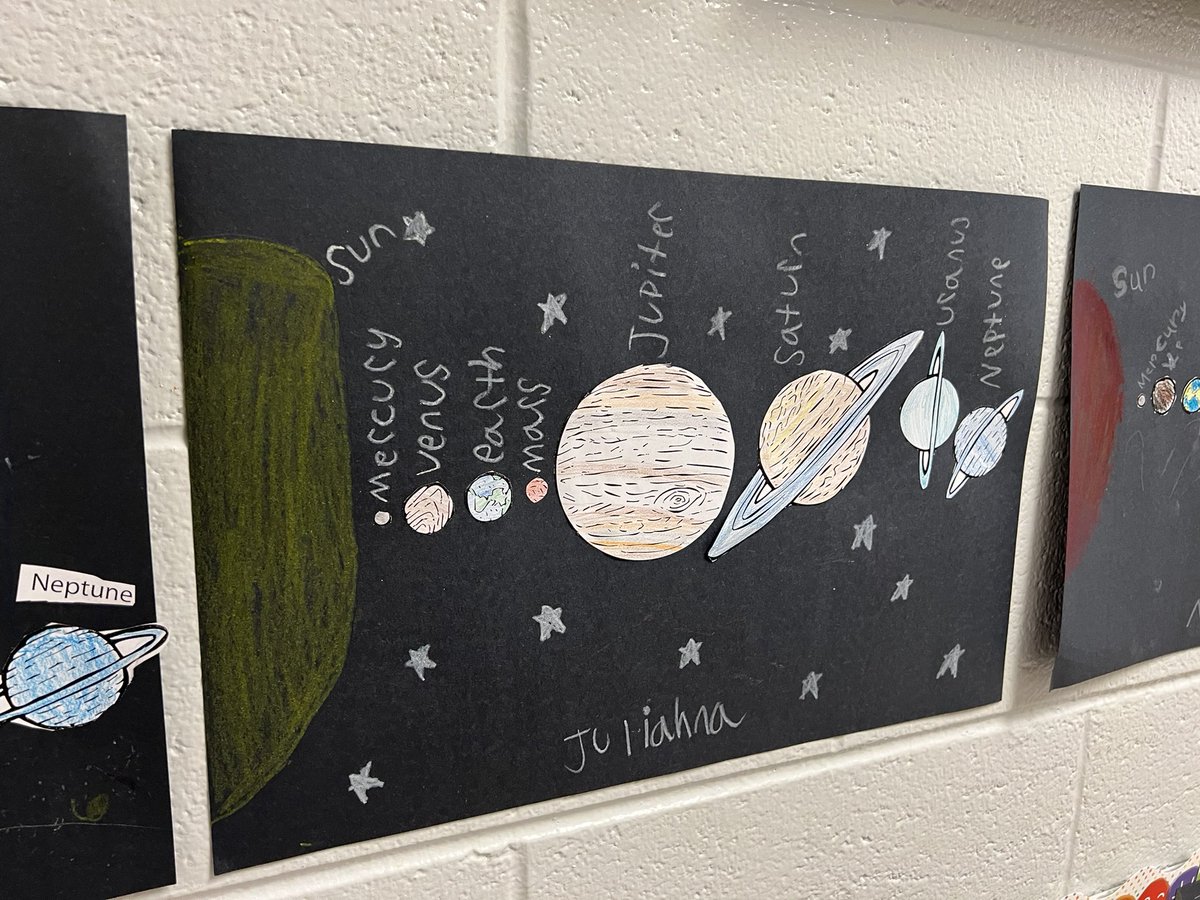 Neptune
Sun
mercury
venus
earth
mars
Jupiter
Saturn
uranus
Neptune
Juliahna
Sun
Mercury